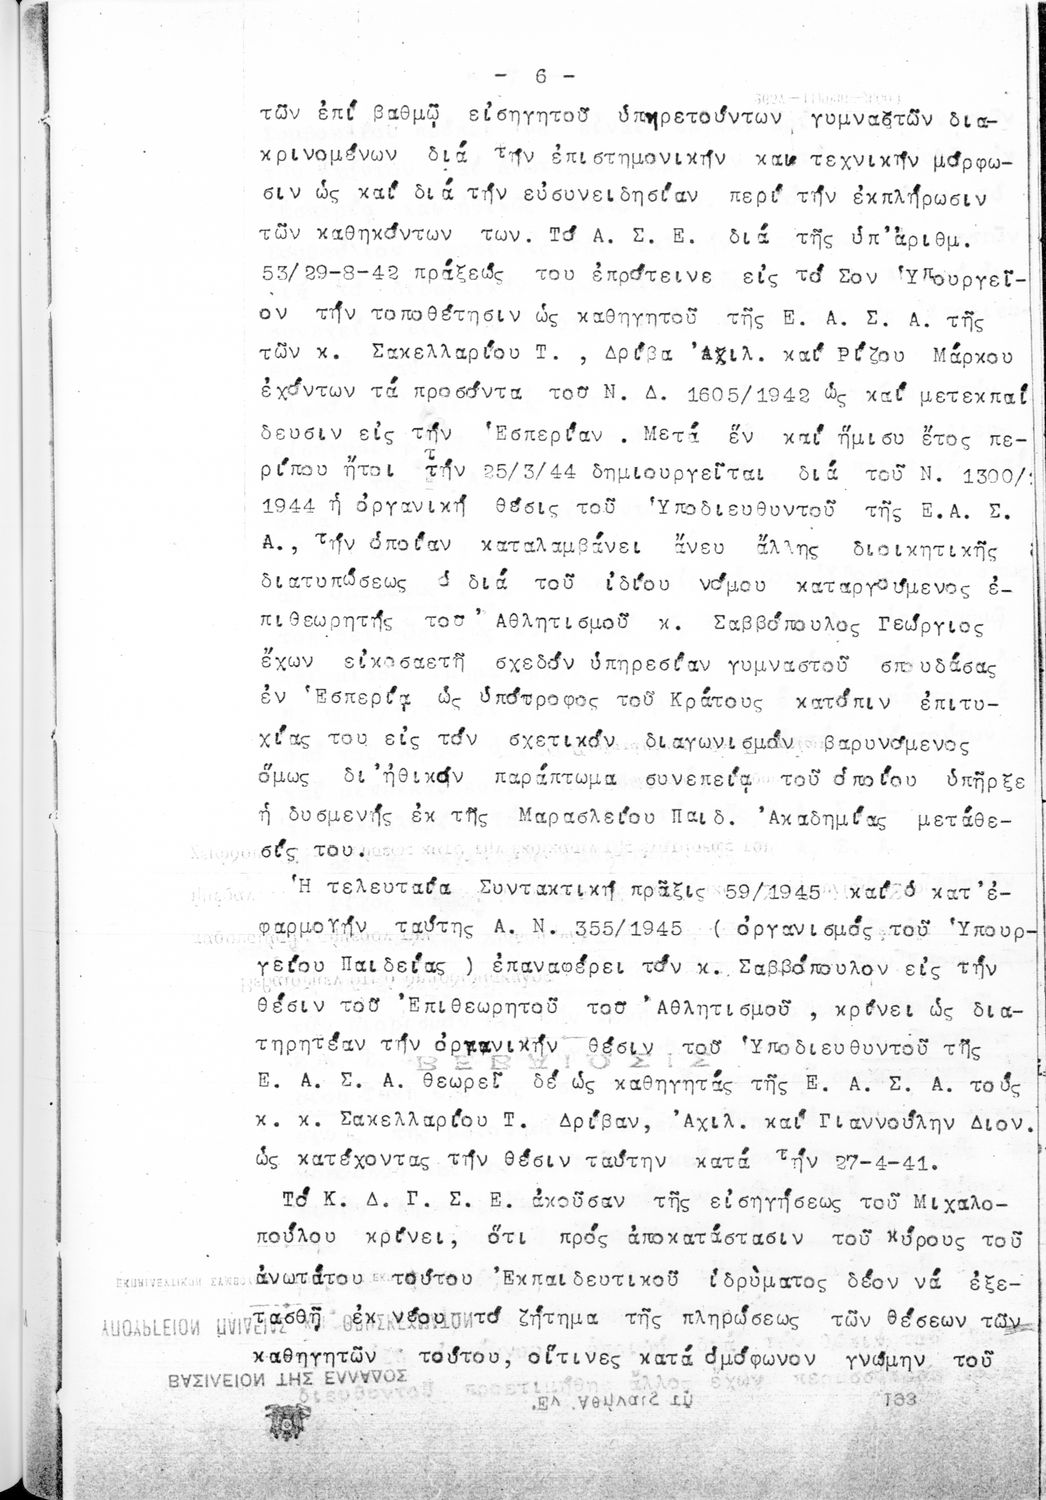 - 6 -
τῶν ἐπί βαθμῷ εἰσηγητοῦ ὑπηρετούντων γυμναστῶν δια-
κρινομένων διά τήν ἐπιστημονικήν και τεχνικήν μόρφω-
σιν ὡς καί διά τήν εὐσυνειδησίαν περί τήν ἐκπλήρωσιν
τῶν καθηκόντων των. Τό Α. Σ. Ε. διά τῆς ὑπ'ἀριθμ.
53/29-8-42 πράξεώς του ἐπρότεινε εἰς τό Σον Ὑπουργεῖ-
ον τήν τοποθέτησιν ὡς καθηγητοῦ τῆς Ε. Α. Σ. Α. τῆς
τῶν κ. Σακελλαρίου Τ. , Δρίβα Ἀχιλ. καί Ρίζου Μάρκου
ἐχόντων τά προσόντα τοῦ Ν. Δ. 1605/1942 ὡς καί μετεκπαί
δευσιν εἰς τήν Ἑσπερίαν . Μετά ἕν καί ἥμισυ ἔτος πε-
ρίπου ἤτοι τήν 25/3/44 δημιουργεῖται διά τοῦ Ν. 1300/
1944 ἡ ὀργανική θέσις τοῦ Ὑποδιευθυντοῦ τῆς Ε.Α. Σ.
Α., τήν ὁποίαν καταλαμβάνει ἄνευ ἄλλης διοικητικῆς
διατυπώσεως ὁ διά τοῦ ἰδίου νόμου καταργούμενος ἐ-
πιθεωρητής τοῦ Ἀθλητισμοῦ κ. Σαββόπουλος Γεώργιος
ἔχων εἰκοσαετῆ σχεδόν ὑπηρεσίαν γυμναστοῦ σπουδάσας
ἐν Ἑσπερίᾳ ὡς ὑπότροφος τοῦ Κράτους κατόπιν ἐπιτυ-
χίας του εἰς τόν σχετικόν διαγωνισμόν βαρυνόμενος
ὅμως δι'ἠθικόν παράπτωμα συνεπείᾳ τοῦ ὁποίου ὑπῆρξε
ἡ δυσμενής ἐκ τῆς Μαρασλείου Παιδ. Ἀκαδημίας μετάθε-
σίς του.
Ἡ τελευταία Συντακτική πρᾶξις 59/1945 καί ὁ κατ'ἐ-
φαρμογήν ταύτης Α. Ν. 355/1945 ( ὀργανισμός τοῦ Ὑπουρ-
γείου Παιδείας ) ἐπαναφέρει τόν κ. Σαββόπουλον εἰς τήν
θέσιν τοῦ Ἐπιθεωρητοῦ τοῦ Ἀθλητισμοῦ , κρίνει ὡς δια-
τηρητέαν τήν ὀργανικήν θέσιν τοῦ Ὑποδιευθυντοῦ τῆς
Ε. Α. Σ. Α. θεωρεῖ δέ ὡς καθηγητάς τῆς Ε. Α. Σ. Α. τούς
κ. κ. Σακελλαρίου Τ. Δρίβαν, Ἀχιλ. καί Γιαννούλην Διον.
ὡς κατέχοντας τήν θέσιν ταύτην κατά τήν 27-4-41.
Τό Κ. Δ. Γ. Σ. Ε. ἀκοῦσαν τῆς εἰσηγήσεως τοῦ Μιχαλο-
πούλου κρίνει, ὅτι πρός ἀποκατάστασιν τοῦ κύρους τοῦ
ἀνωτάτου τούτου Ἐκπαιδευτικοῦ ἱδρύματος δέον νά ἐξε-
τασθῇ ἐκ νέου τό ζήτημα τῆς πληρώσεως τῶν θέσεων τῶν
καθηγητῶν τούτου, οἵτινες κατά ὁμόφωνον γνώμην τοῦ
ΒΑΣΙΛΕΙΟΝ ΤΗΣ ΕΛΛΑΔΟΣ